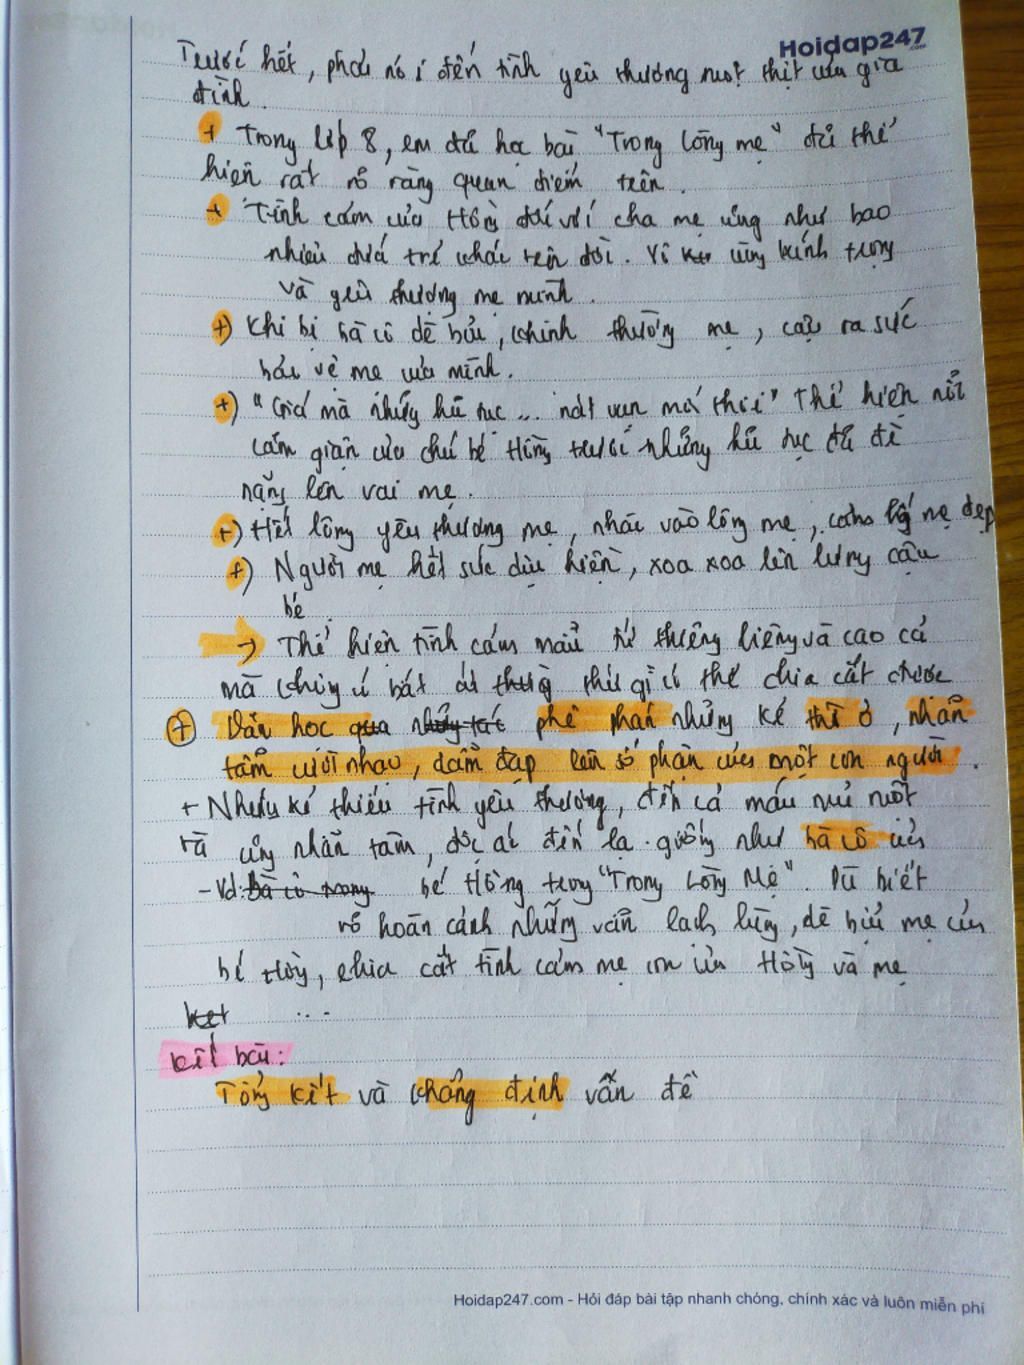 Hoidap247
.com
Trước hết, phải nói đến tình yêu thương ruột thịt của gia
đình.
+ Trong lớp 8, em đã học bài "Trong lòng mẹ" đã thể
hiện rất rõ ràng quan điểm trên.
+ Tình cảm của Hồng đối với cha mẹ cũng như bao
nhiêu đứa trẻ khác trên đời. Vì cũng kính trọng
và yêu thương mẹ mình.
+) Khi bị bà cô dè bỉu, khinh thường mẹ, cậu ra sức
bảo vệ mẹ của mình.
+) "Giá mà những hủ tục ... nát vụn mới thôi" Thể hiện nỗi
căm giận của chú bé Hồng trước những hủ tục đã đè
nặng lên vai mẹ.
+) Hết lòng yêu thương mẹ, nhào vào lòng mẹ, mẹ đẹp
+) Người mẹ hết sức dịu hiền, xoa xoa lên lưng cậu
bé.
→ Thể hiện tình cảm mẫu tử thiêng liêng và cao cả
mà chẳng có bất cứ thứ gì có thể chia cắt được
+ Văn học phê phán những kẻ thờ ơ, nhẫn
tâm cười nhạo, dẫm đạp lên số phận của một con người.
+ Những kẻ thiếu tình yêu thương, đến cả máu mủ ruột
rà cũng nhẫn tâm, độc ác đến lạ. giống như bà cô của
- Vd: bà cô trong bé Hồng trong "Trong Lòng Mẹ". Dù biết
rõ hoàn cảnh nhưng vẫn lạnh lùng, dè bỉu mẹ của
bé Hồng, chia cắt tình cảm mẹ con của Hồng và mẹ
ket ...
Kết bài:
Tổng kết và khẳng định vấn đề
Hoidap247.com - Hỏi đáp bài tập nhanh chóng, chính xác và luôn miễn phí